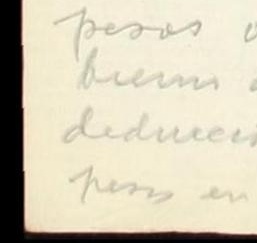 pesos
bierno
deducció
pesos en